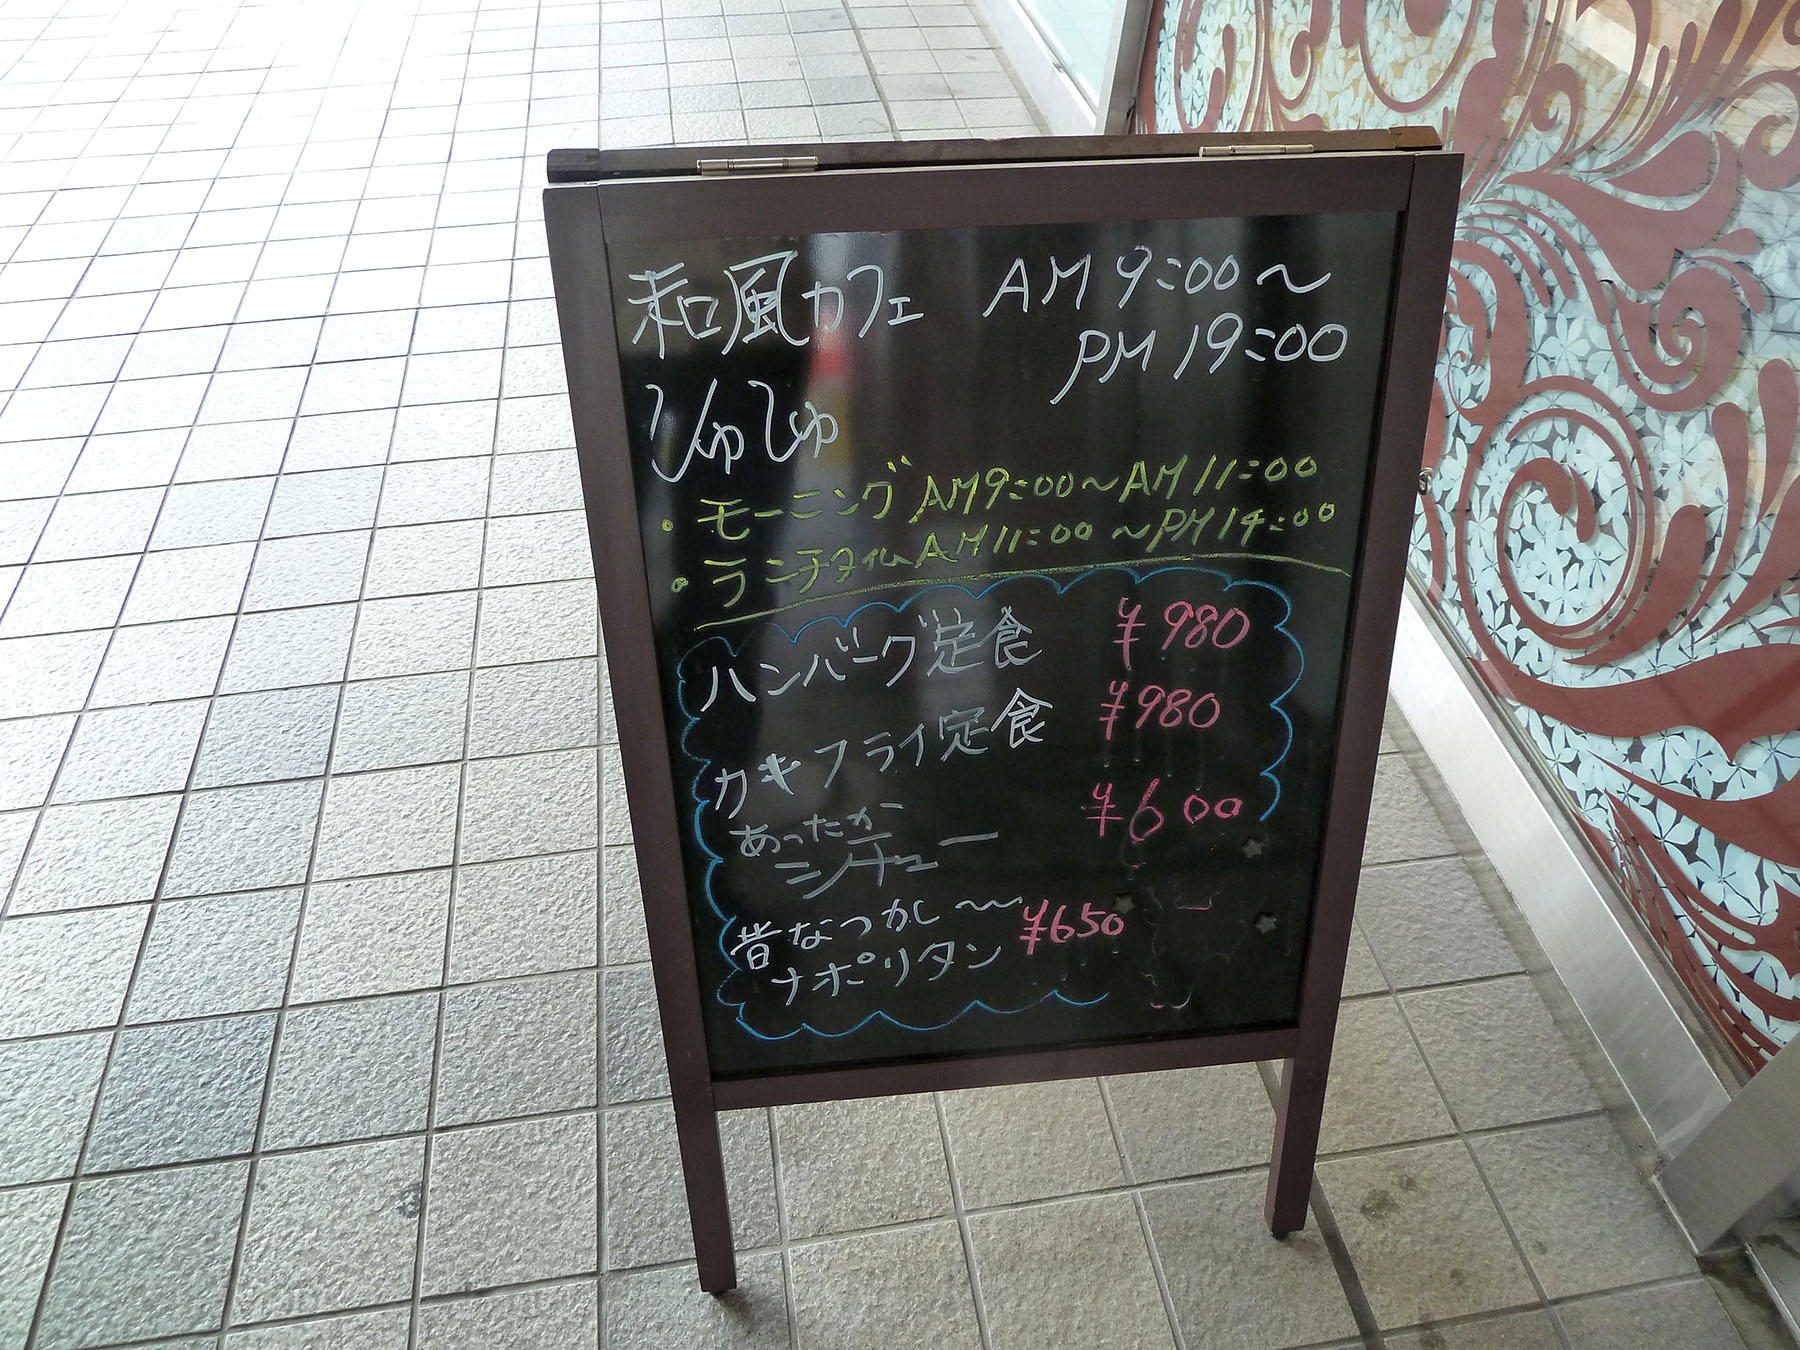 和風カフェ AM 9:00〜
PM 19:00
しゅしゅ
・モーニング AM9:00〜AM11:00
・ランチタイム AM11:00〜PM14:00
ハンバーグ定食 ¥980
カキフライ定食 ¥980
あったか
シチュー ¥600
昔なつかし〜 ¥650
ナポリタン